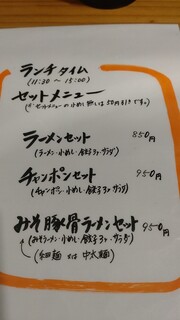 ランチタイム
(11:30 〜 15:00)
セットメニュー
(※セットメニューの小めし無しは50円引きです。)
ラーメンセット 850円
(ラーメン・小めし・餃子3ヶ・サラダ)
チャンポンセット 950円
(チャンポン・小めし・餃子3ヶ・サラダ)
みそ豚骨ラーメンセット 950円
(みそラーメン・小めし・餃子3ヶ・サラダ)
(細麺 又は 中太麺)